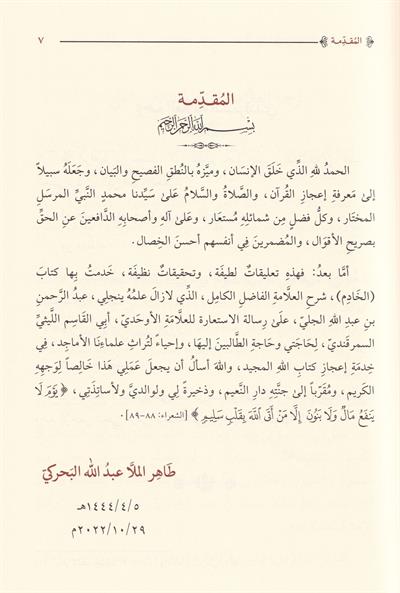 المُقدِّمة ٧
المُقدِّمة
بِسْمِ اللَّهِ الرَّحْمَنِ الرَّحِيمِ
الحمدُ للهِ الذِّي خَلَقَ الإنسَان، وميَّزهُ بالنُطقِ الفصيحِ والبَيان، وجعَلَهُ سبيلاً
إلى مَعرفةِ إعجازِ القُرآن، والصَّلاةُ والسَّلامُ عَلىٰ سيِّدنا محمدٍ النَّبيِّ المرسَلِ
المختَار، وكلُّ فضلٍ مِن شمائلِهِ مُستعَار، وعَلىٰ آلهِ وأصحابِهِ الدَّافعينَ عنِ الحقِّ
بصريحِ الأقوَال، والمُضمرينَ فِي أنفسهم أحسنَ الخِصال.
أمَّا بعدُ: فهذهِ تعليقاتٌ لطيفَة، وتحقيقاتٌ نظيفَة، خَدمتُ بِها كتابَ
(الخَادِم)، شرحِ العلَّامةِ الفاضلِ الكامِل، الذِّي لازالَ علمُهُ ينجلِي، عبدُ الرَّحمنِ
بنِ عبدِ اللهِ الجليّ، علَىٰ رِسالة الاستعارة للعلَّامَةِ الأوحَديّ، أبِي القَاسِم اللَّيثيِّ
السمرقَنديّ، لِحَاجَتي وحَاجةِ الطَّالبينَ إليهَا، وإحيَاءً لتُراثِ علماءِنَا الأماجِد، فِي
خِدمةِ إعجَازِ كتابِ اللهِ المجيد، واللهَ أسألُ أن يجعلَ عمَلِي هَذا خَالِصاً لِوَجهِهِ
الكَريم، ومُقَرِّباً إلى جنَّتِهِ دارِ النَّعيم، وذخيرةً لِي ولوالديَّ ولأساتِذَتِي، ﴿ يَوْمَ لَا
يَنفَعُ مَالٌ وَلَا بَنُونَ إِلَّا مَنْ أَتَى ٱللَّهَ بِقَلْبٍ سَلِيمٍ ﴾ [الشعراء: ٨٨-٨٩].
طَاهِر الملَّا عبدُ الله البَحركيّ
١٤٤٤/٤/٥هـ
٢٠٢٢/١٠/٢٩م